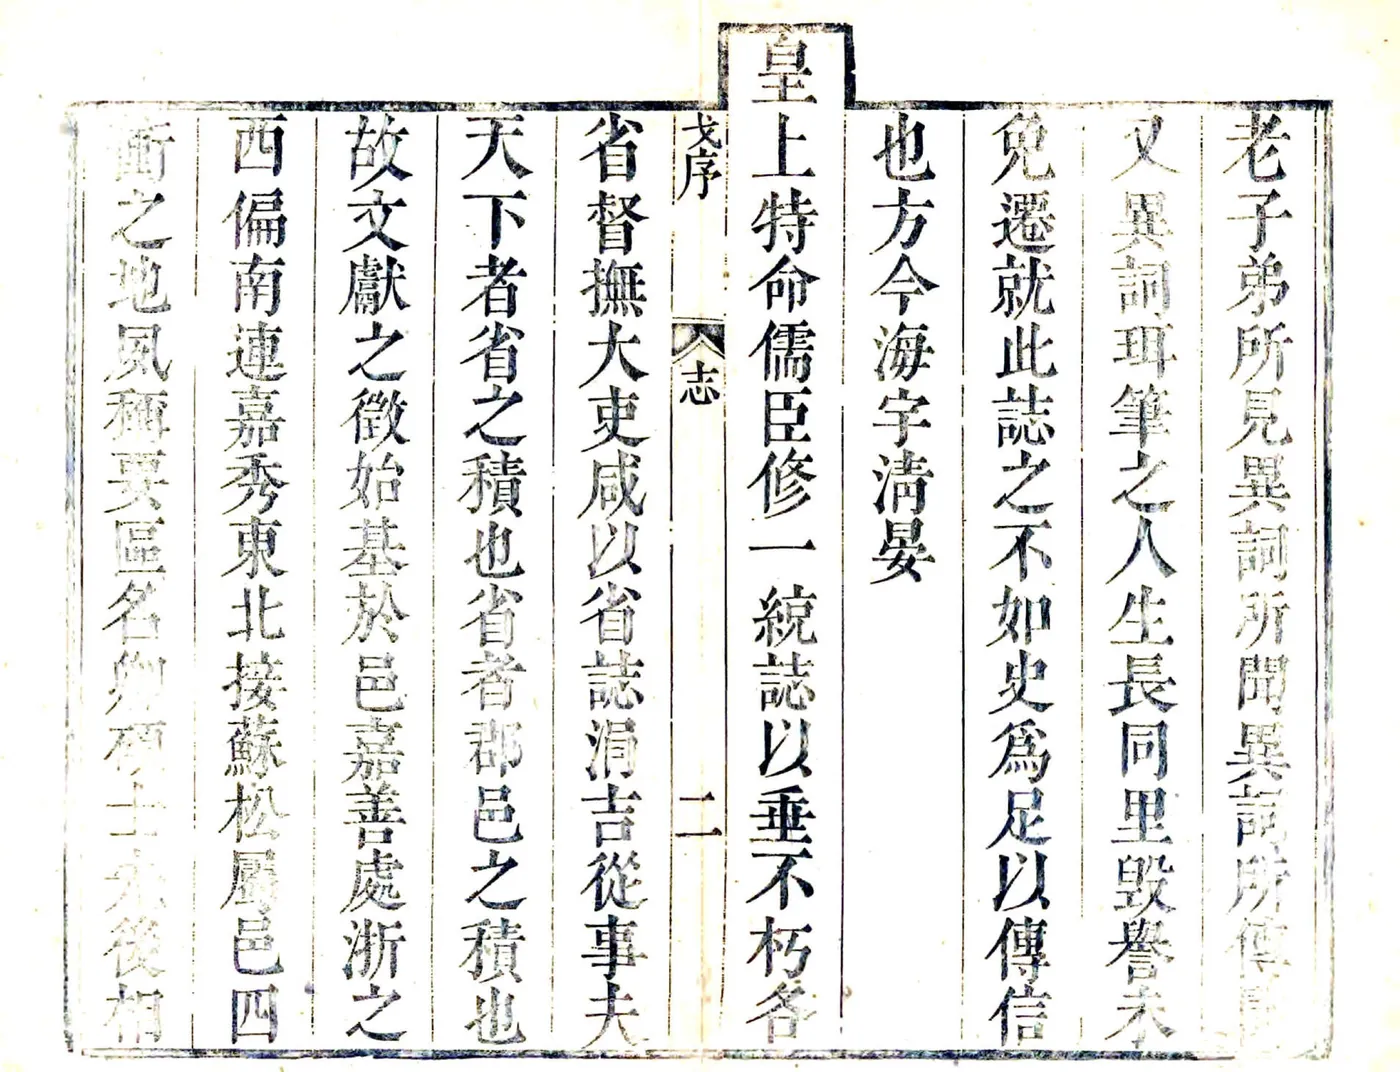 老子弟所見異詞所聞異詞所傳聞
又異詞珥筆之人生長同里毀譽未
免遷就此誌之不如史爲足以傳信
也方今海宇淸晏
皇上特命儒臣修一統誌以垂不朽各
戈序 志 二
省督撫大吏咸以省誌涓吉從事夫
天下者省之積也省者郡邑之積也
故文獻之徵始基於邑嘉善處浙之
西偏南連嘉秀東北接蘇松屬邑四
衝之地夙稱要區名卿碩士先後相